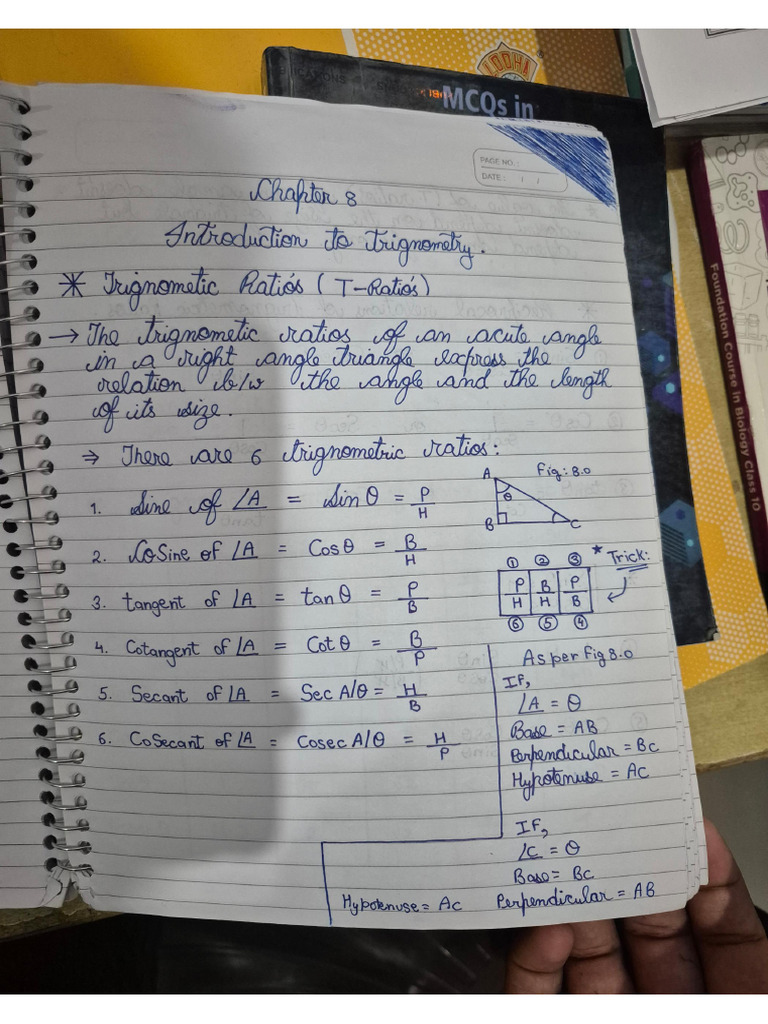 LODHA
MCQs in
PAGE NO.:
DATE: / /
Foundation Course in Biology Class 10
Chapter 8
Introduction to trignometry.
* Trignometic Ratios (T-Ratios)
→ The trignometic ratios of an acute angle
in a right angle triangle express the
relation b/w the angle and the length
of its size.
⇒ There are 6 trignometric ratios:
Fig: 8.0
A
θ
B
C
1. Sine of ∠A = Sin θ = P/H
2. CoSine of ∠A = Cos θ = B/H
3. tangent of ∠A = tan θ = P/B
4. Cotangent of ∠A = Cot θ = B/P
5. Secant of ∠A = Sec A/θ = H/B
6. CoSecant of ∠A = Cosec A/θ = H/P
* Trick:
① ② ③
P B P
H H B
⑥ ⑤ ④
As per Fig 8.0
IF,
∠A = θ
Base = AB
Perpendicular = BC
Hypotenuse = AC
IF,
∠C = θ
Base = BC
Perpendicular = AB
Hypotenuse = AC